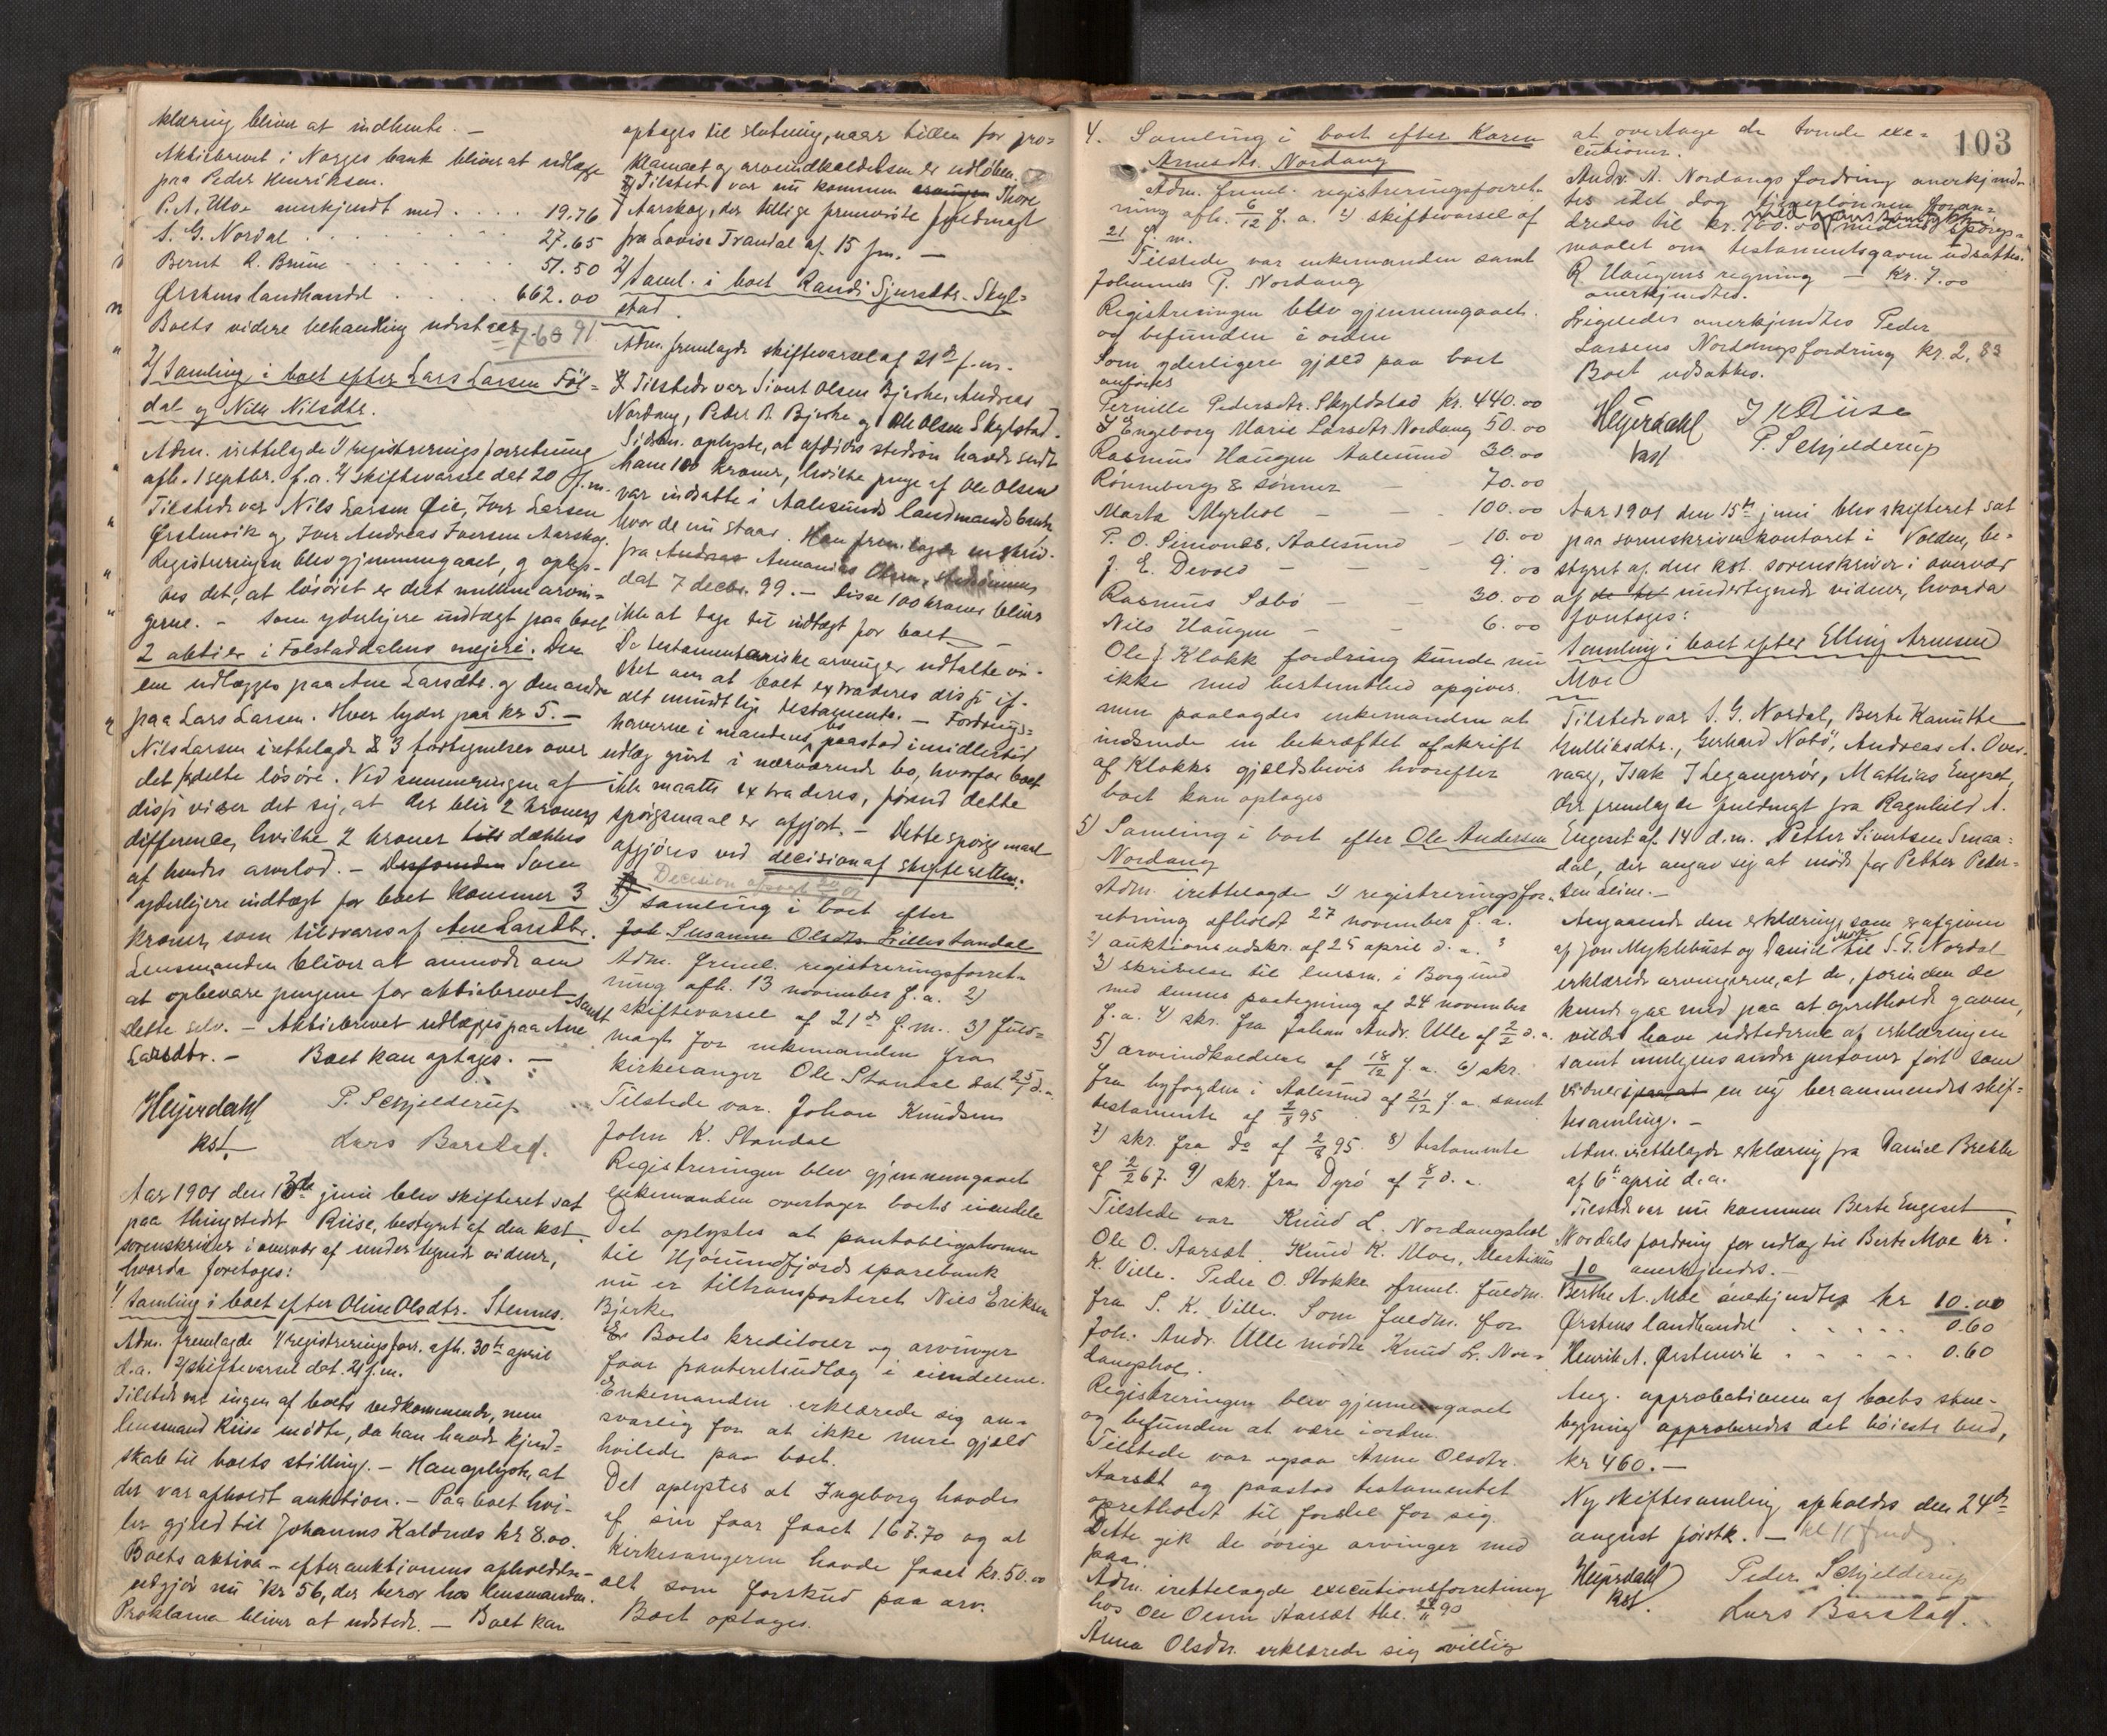 klæring bliver at indhente. —
Aktiebrevet i Norges bank bliver at udlægge
paa Peder Henriksen.
P. A. Ulve anerkjendt med . . . . 19.76
S. G. Nordal . . . . . . . 27.65
Bernt R. Brune . . . . . . . 51.50
Ørstens landhandel . . . . . 662.00
Boets videre behandling udsattes.
760 91
2/ Samling i boet efter Lars Larsen Föl-
dal og Nille Nilsdtr.
Adm. irettelagde 1/ registreringsforretning
afh. 1 septbr. f.a. 2/ skiftevarsel dat 20 f.m.
Tilstede var Nils Larsen Øie, Iver Larsen
Ørstenvik og Iver Andreas Iversen Aarskog.
Registreringen blev gjennemgaaet, og oplys-
tes det, at lösöret er delt mellem arvin-
gerne. - Som yderligere indtægt paa boet
2 aktier i Folstaddalens meieri. Den
ene udlægges paa Ane Larsdtr. og den andre
paa Lars Larsen. Hver lyder paa kr 5. —
Nils Larsen irettelagde 3 fortegnelser over
det fordelte lösöre. Ved summeringen af
disse viser det sig, at der blir 2 kroners
difference, hvilke 2 kroner dækkes
af hendes arvelod. — Som
yderligere indtægt for boet kommer 3
kroner, som tilsvares af Ane Larsdtr.
Lensmanden bliver at anmode om
at opbevare pengene for aktiebrevet samt
dette selv. — Aktiebrevet udlægges paa Ane
Larsdtr. — Boet kan optages. —
Heyerdahl P. Schjelderup
kst. Lars Barstad.
Aar 1901 den 13de juni blev skifteret sat
paa thingstedet Riise, bestyret af den kst.
sorenskriver i overvær af undertegnede vidner,
hvorda foretoges:
1/ Samling i boet efter Oline Olsdtr. Stennes.
Adm. fremlagde 1/ registreringsforr. afh. 30te april
d.a. 2/ skiftevarsel dat. 21 f.m.
Tilstede var ingen af boets vedkommende, men
lensmand Riise mödte, da han havde kjend-
skab til boets stilling. — Han oplyste, at
der var afholdt auktion. — Paa boet hvi-
ler gjeld til Johannes Kaldnæs kr 8.00.
Boets aktiva — efter auktionens afholdelse —
udgjör nu kr 56, der beror hos lensmanden.
Proklama bliver at udstede. — Boet kan
optages til slutning, naar tiden for pro-
klamaet og arveindkaldelsen er udlöben.
Tilstede var nu kommen Thore
Aarskog, der tillige fremviste fuldmagt
fra Lovise Trandal af 15 f.m. —
2/ Saml. i boet Randi Sjursdtr. Skyl-
stad.
Adm. fremlagde skiftevarsel af 21de f.m.
Tilstede var Sivert Olsen Bjerke, Andreas
Nordang, Peder R. Bjerke og Ole Olsen Skylstad.
Sidstn. oplyste, at afdödes stedsön havde sendt
ham 100 kroner, hvilke penge af Ole Olsen
var indsatte i Aalesunds landmandsbank,
hvor de nu staar. Han fremlagde en skriv.
fra Andreas Annanias Olsen, stedsönnens
dat 7 decbr. 99. — Disse 100 kroner bliver
ikke at tage til indtægt for boet —
De testamentariske arvinger udtalte vi-
det om at boet extraderes disse if.
det mundtlige testamente. — Fordrings-
haverne i mandens bo paastod imidlertid
udlæg gjort i nærværende bo, hvorfor boet
ikke maatte extraderes, förend dette
spörgsmaal er afgjort. — Dette spörgsmaal
afgjöres ved decision af skifteretten.
Decision afsagt
3) Samling i boet efter
Susanne Olsdtr. Lillestandal
Adm. freml. registreringsforret-
ning afh. 13 november f.a. 2)
skiftevarsel af 21de f.m. 3) fuld-
magt for enkemanden fra
kirkesanger Ole Standal dat 25/ d.a.
Tilstede var Johan Knudsen
John K. Standal
Registreringen blev gjennemgaaet
enkemanden overtager boets eiendele
Det oplystes at pantobligationen
til Hjörundfjords sparebank
nu er tiltransporteret Nils Eriksen
Bjerke
Boets kreditorer og arvinger
faar panteretsudlæg i eiendelene.
Enkemanden erklærede sig an-
svarlig for at ikke mere gjæld
hvilede paa boet.
Det oplystes at Ingeborg havde
af sin faar faaet 167.70 og at
kirkesangeren havde faaet kr. 50.00
alt som forskud paa arv.
Boet optages.
103
4. Samling i boet efter Karen
Arnesdtr. Nordang
Adm. freml. registreringsforret-
ning afh. 6/12 f.a. 2) skiftevarsel af
21 f.m.
Tilstede var enkemanden samt
Johannes P. Nordang
Registreringen blev gjennemgaaet
og befunden i orden
Som yderligere gjæld paa boet
anföres
Pernille Pedersdtr. Skyldstad kr. 440.00
Engeborg Marie Larsdtr Nordang 50.00
Rasmus Haugen Aalesund 30.00
Rönneberg & sönner — 70.00
Marta Myrhol — — 100.00
P. O. Simones, Aalesund — 10.00
J. E. Devold — — — 9.00
Rasmus Sæbö — — 30.00
Nils Haugen — — 6.00
Ole Klokk fordring kunde nu
ikke med bestemthed opgives.
men paalagdes enkemanden at
indsende en bekræftet afskrift
af Klokks gjældsbevis hvorefter
boet kan optages
5) Samling i boet efter Ole Andersen
Nordang
Adm. irettelagde 1) registreringsfor-
retning afholdt 27 november f.a.
2) auktionsudskr. af 25 april d.a.
3) skrivelse til lensm. i Borgund
med dennes paategning af 24 november
f.a. 4) skr. fra Johan Andr. Ulle af 2/2 d.a.
5) arveindkaldelse af 18/12 f.a. 6) skr.
fra byfogden i Aalesund af 21/12 f.a. samt
testamente af 2/8 95
7) skr. fra do af 2/8 95. 8) testamente
af 2/2 67. 9) skr. fra Dyrö af 8/1 d.a.
Tilstede var Knud L. Nordangshol
Ole O. Aarsæt. Knud K. Moe, Martinus
K. Ville. Peder O. Stokke freml. fuldm.
fra S. K. Ville. Som fuldm. for
Joh. Andr. Ulle mödte Knud L. Nor-
dangshol.
Registreringen blev gjennemgaaet
og befunden at være i orden.
Tilstede var ogsaa Anne Olsdtr.
Aarsæt og paastod testamentet
opretholdt til fordel for sig.
Dette gik de övrige arvinger med
paa.
Adm. irettelagde executionsforretning
hos Ole Olsen Aarsæt
Anna Olsdtr. erklærede sig villig
at overtage de tvende exe-
cutioner.
Andr. A. Nordangs fordring anerkjend-
tes idet dog foran-
dredes til kr. 100.00 medens spörgs-
maalet om testamentsgaven udsattes.
R Haugens regning — Kr. 7.00
anerkjendtes.
Ligeledes anerkjendtes Peder
Larsens Nordangs fordring kr. 2,83
Boet udsattes.
Heyerdahl
kst
J K Riise
P. Schjelderup
Aar 1901 den 15de juni blev skifteret sat
paa sorenskriverkontoret i Volden, be-
styret af den kst. sorenskriver i overvær
af undertegnede vidner, hvorda
foretoges:
Samling i boet efter Elling Arnesen
Moe
Tilstede var S. G. Nordal, Berte Kanutte
Gulliksdtr., Gerhard Notö, Andreas A. Over-
vaag, Isak J Legangerör, Mathias Engeset,
der fremlagde fuldmagt fra Ragnhild A.
Engeset af 14 d.m. Petter Sivertsen Smaa-
dal, der angav sig at möde for Petter Peder-
sen
Angaaende den erklæring, som er afgiven
af Jon Myklebust og Daniel til S. G. Nordal
erklærede arvingerne, at de, forinden de
kunde gaa med paa at opretholde gaven,
vilde have udstederne af erklæringen
samt muligens andre personer fört som
vidner i en ny berammendes skif-
tesamling. —
Adm. irettelagde erklæring fra Daniel Brekke
af 6te april d.a.
Tilstede var nu kommen Berte Engeset
Nordals fordring for udlæg til Berte Moe kr
10 anerkjendes. —
Berthe A. Moe anerkjendtes kr 10.00
Ørstens landhandel . . . . . 0.60
Henrik A. Ørstenvik . . . . . 0.60
Ang. approbationen af boets stue-
bygning approberedes det höieste bud,
kr 460. —
Ny skiftesamling afholdes den 24de
august förstk. — kl 11 fmd
Heyerdahl
kst.
Peder Schjelderup
Lars Barstad.